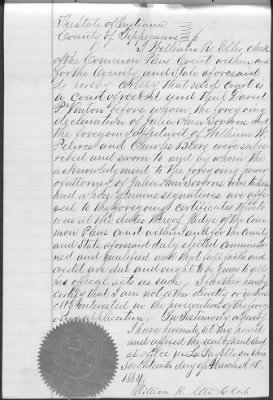 The State of Indiana
County of Tippecanoe
I William R. Ellis clerk
of the Common Pleas Court within and
for the County and State aforesaid
do hereby certify that said court is
a court of record and that David
P. Vinton before whom the foregoing
declaration of Julia Ann and
the foregoing affidavit of William W.
and Charles were subs
cribed and sworn to and by whom the
acknowledgment to the foregoing power
of attorney of Julia Ann was taken
and whose genuine signatures are affix
ed to the foregoing certificates thereto
was at the dates thereof Judge of the Com
mon Pleas court within and for the County
and State aforesaid duly elected commission
ed and qualified and that full faith and
credit are due and ought to be given to all
his official acts as such. I further hereby
certify that I am not either directly or indire
ctly interested in the prosecution of the fore
going application. In Testimony whereof
I have hereunto set my hand
and affixed the seal of said Court
at office in La Fayette on this
day of March A.D.
William R. Ellis Clerk